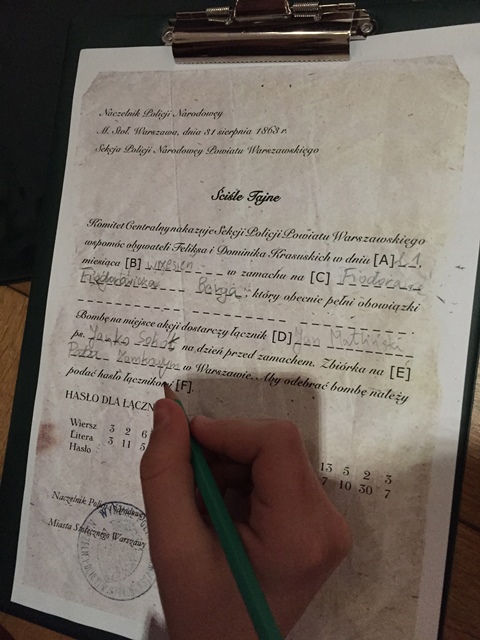 Naczelnik Policji Narodowej
M. Stoł. Warszawa, dnia 31 sierpnia 1863 r.
Sekcja Policji Narodowej Powiatu Warszawskiego
Ściśle Tajne
Komitet Centralny nakazuje Sekcji Policji Powiatu Warszawskiego
wspomóc obywateli Feliksa i Dominika Krasuskich w dniu [A]
miesiąca [B] wrzesień w zamachu na [C] Fiodora
Berga, który obecnie pełni obowiązki
Bombę na miejsce akcji dostarczy łącznik [D] Jan
ps. Janko Sokół na dzień przed zamachem. Zbiórka na [E]
w Warszawie. Aby odebrać bombę należy
podać hasło łącznikowi [F].
HASŁO DLA
Wiersz 3 2 6 13 5 2 3
Litera 3 11 5 7 10 30 7
Hasło
Naczelnik
Miasta Stołecznego Warszawy